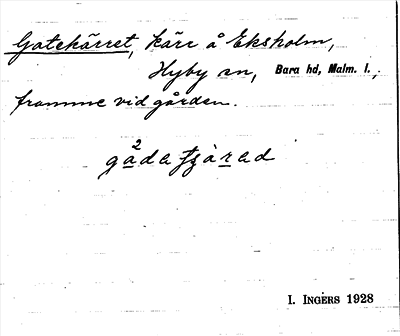 Gatekärret, kärr å Eksholm,
Hyby sn, Bara hd, Malm. l.,
framme vid gården.
2
gada tjärad
I. INGERS 1928